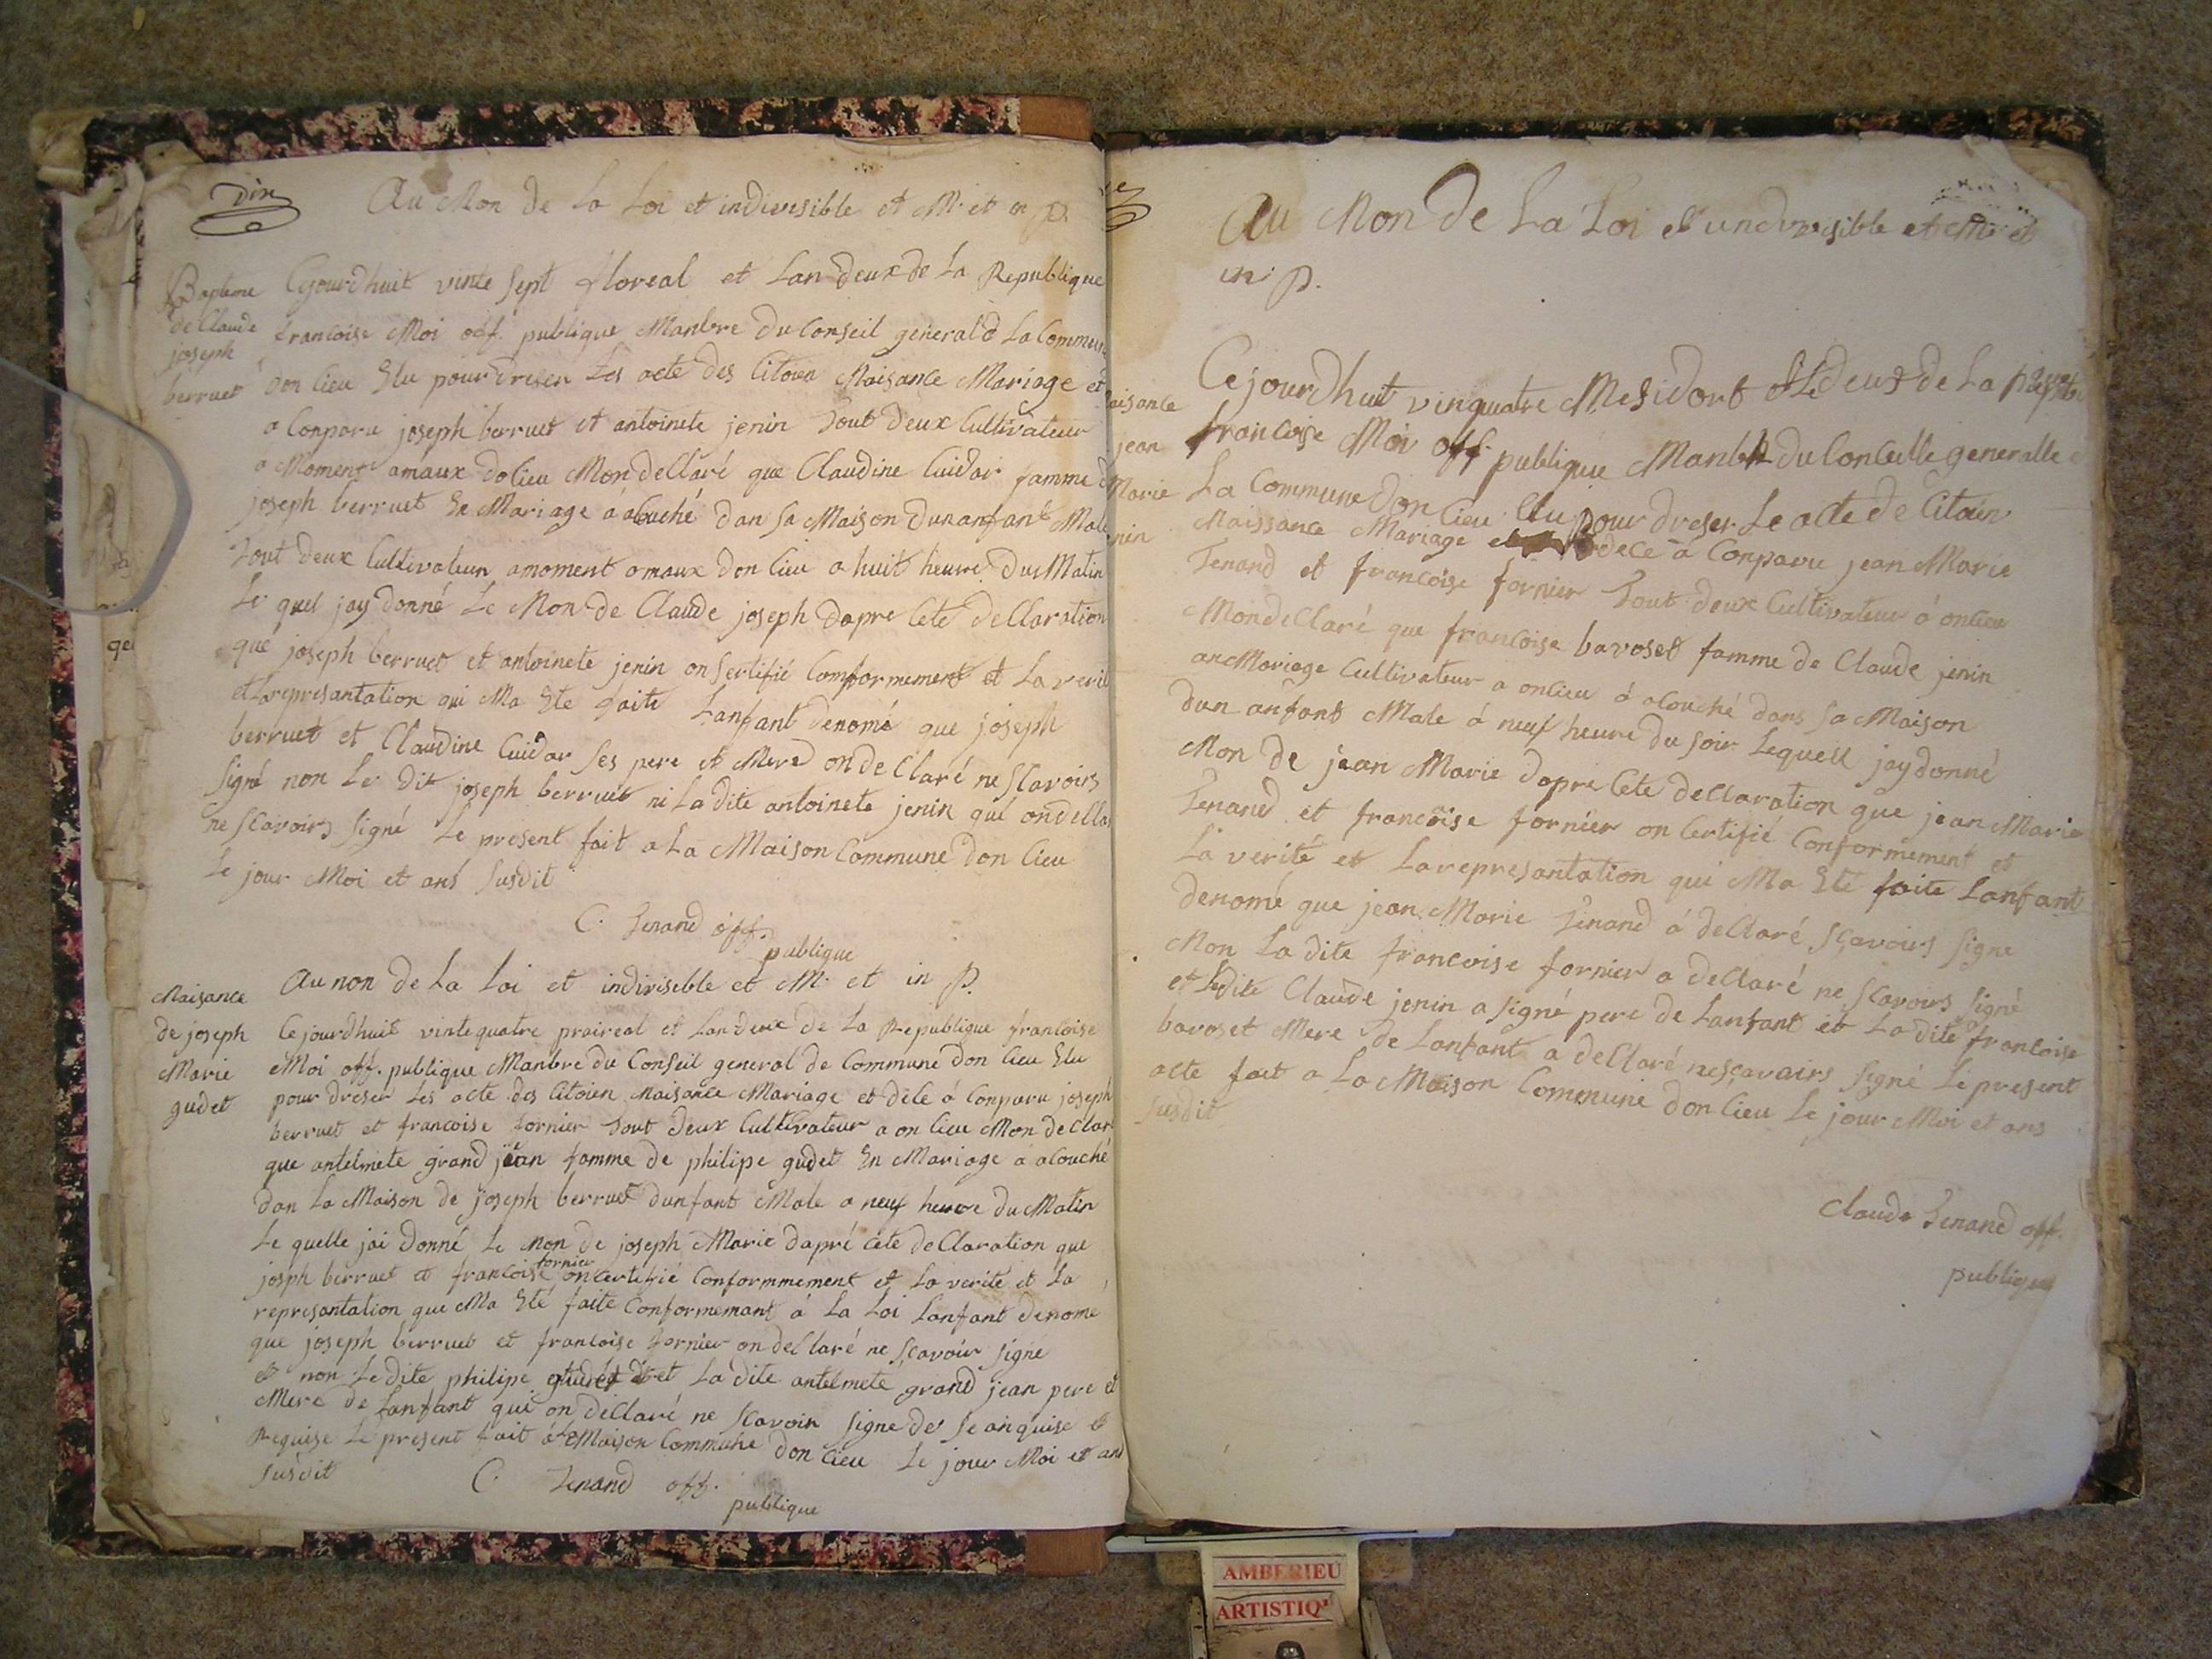 dix
Au Mon de La Loi et indivesible et M. et in p.
Bapteme
de Claude
joseph
berruet
Cejourdhuit vinte sept floreal et Lan deux de La Republique
francoise Moi off. publique Manbre du Conseil general d La Commune
don lieu Elu pour dreser Les acte des Citoien Naisance Mariage et
a Conparu joseph berruet et antoinete jenin Tout deux Cultivateur
a Moment amaux do lieu Mon dellaré que Claudine Cuidar famme d
joseph berruet En Mariage á alouché dan sa Maison dunanfant Male
Tout deux Cultivateur amoment amaux don lieu a huit heure du Matin
Le quel jay donné Le Non de Claude joseph dapre Cete dellaration
que joseph berruet et antoinete jenin on sertifié Comformement et La verit
et Larepresantation qui Ma Ete faite Lanfant denomé que joseph
berruet et Claudine Cuidar ses pere et Mere on declaré ne scavoirs
signé non Le dit joseph berruet ni La dite antoinete jenin qui on della
ne scavoirs signé Le present fait a La Maison Commune don lieu
Le jour Moi et ans susdit
C. Tenand off.
publique
Naisance
de joseph
Marie
gudet
Au non de La Loi et indivisible et M. et in p.
Cejourdhuit vintequatre praireal et Lan deux de La Republique francoise
Moi off. publique Manbre du Conseil general de Commune don lieu Elu
pour dreser Les acte des Citoien Naisance Mariage et décé á Conparu joseph
berruet et francoise fornier Tout deux Cultivateur a on lieu Mon declar
que antelmete grand jean famme de philipe gudet En Mariage á alouché
dan La Maison de joseph berruet dunfant Male a neuf heure du Matin
Le quelle jai donné Le Non de joseph Marie dapré Cete declaration que
josph berruet et francoise fornier on Certifié Conformmement et La verite et La
represantation que Ma Eté faite Conformemant á La Loi Lanfant denome
que joseph berruet et francoise fornier on dellaré ne scavoir signé
et non Le dite philipe gudet et La dite antelmete grand jean pere et
Mere de Lanfant qui on dellaré ne scavoir signe de se anquise et
Requise Le present fait á La Maison Commune don lieu Le jour Moi et ans
susdit
C. Tenand off.
publique
Au Non de La Loi et undivesible et M. et
in p.
aisance
jean
Marie
nin
Cejourdhuit vinquatre Mesidort Et Le deux de La
francoise Moi off. publique Manbre du Conceille generalle
La Commune don lieu Elu pour dreser Le acte de Citoien
Naissance Mariage et decé á Conparu jean Marie
Tenand et francoise fornier Tout deux Cultivateur á onlieu
Mondeclaré que francoise bavoset famme de Claude jenin
an Mariage Cultivateur a onlieu á alouché dans sa Maison
dun anfant Male á neuf heure du soir Lequell jay donné
Mon de jean Marie dapre Cete dellaration que jean Marie
Tenand et francoise fornier on Certifié Conformement et
La verité et La represantation qui Ma Eté faite Lanfant
denomé que jean Marie Tenand á dellaré scavoirs signe
Mon La dite francoise fornier a dellaré ne scavoirs signé
et Ledite Claude jenin a signé pere de Lanfant et La dite francoise
bavoset Mere de Lanfant a dellaré ne scavoirs signé Le present
acte fait a La Maison Commune don lieu Le jour Moi et ans
susdit
Claude Tenand off.
publique
AMBERIEU
ARTISTIQ